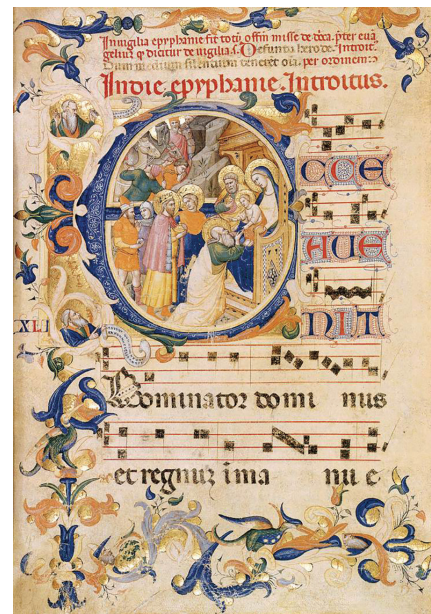 In uigilia epyphanie fit totū offm̄ misse de dn̄ca. p̄ter euā
geliuȝ qd̄ dicitur de uigilia s. Defuncto herode. Introit.
Dum medium silentium teneret oīa. per ordinem
In die. epyphanie. Introitus.
ECCE
AVE
NIT
XLI
Dominator domi nus
et regnuȝ i ma nu e